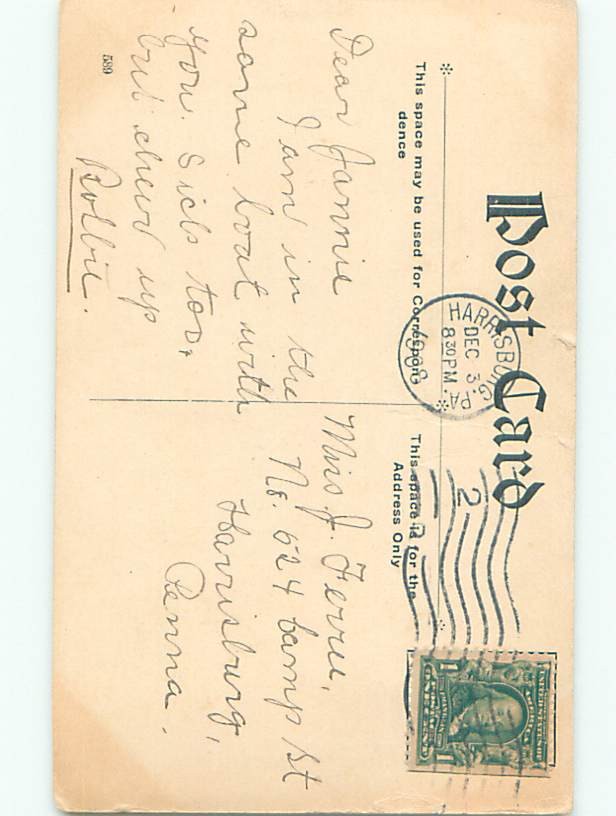 Post Card
This space may be used for Correspondence
This space is for the Address Only
HARRISBURG, PA.
DEC 3
8 30 PM
1908
2
Dear Jannie
I am in the
same boat with
you. Sick too,
but cheer up
Robbie.
Miss J. Ferre,
No. 624 Camp St
Harrisburg,
Penna.
589
UNITED STATES OF AMERICA
1
1